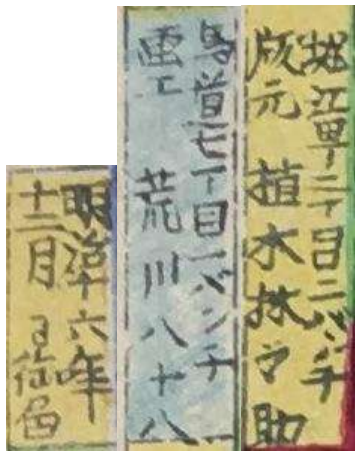 堀江町二丁目二バンチ
版元 植木林之助
馬道七丁目一バンチ
画工 荒川八十八
明治十六年
十二月 日御届